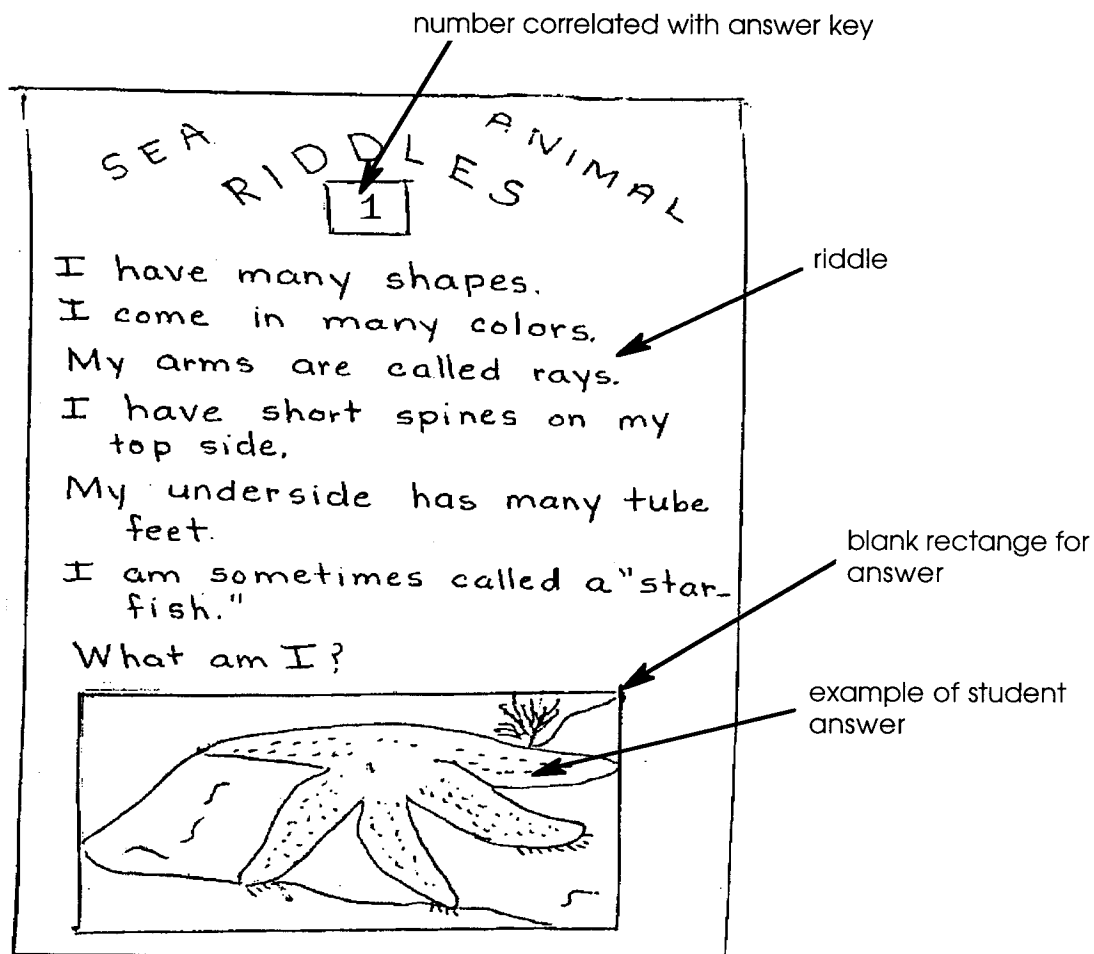 number correlated with answer key
SEA ANIMAL
RIDDLES
1
I have many shapes.
I come in many colors.
My arms are called rays.
I have short spines on my
top side.
My underside has many tube
feet.
I am sometimes called a "star-
fish."
What am I?
riddle
blank rectange for
answer
example of student
answer